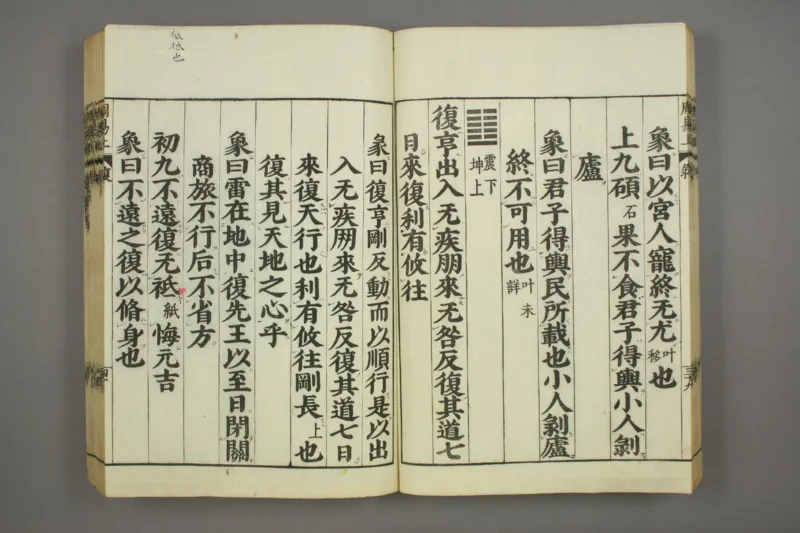 象曰以宮人寵終无尤叶也
上九碩石果不食君子得輿小人剝
廬
象曰君子得輿民所載也小人剝廬
終不可用也叶未詳
震下
坤上
復亨出入无疾朋來无咎反復其道七
日來復利有攸往
彖曰復亨剛反動而以順行是以出
入无疾朋來无咎反復其道七日
來復天行也利有攸往剛長上也
復其見天地之心乎
象曰雷在地中復先王以至日閉關
商旅不行后不省方
初九不遠復无祗紙悔元吉
象曰不遠之復以脩身也